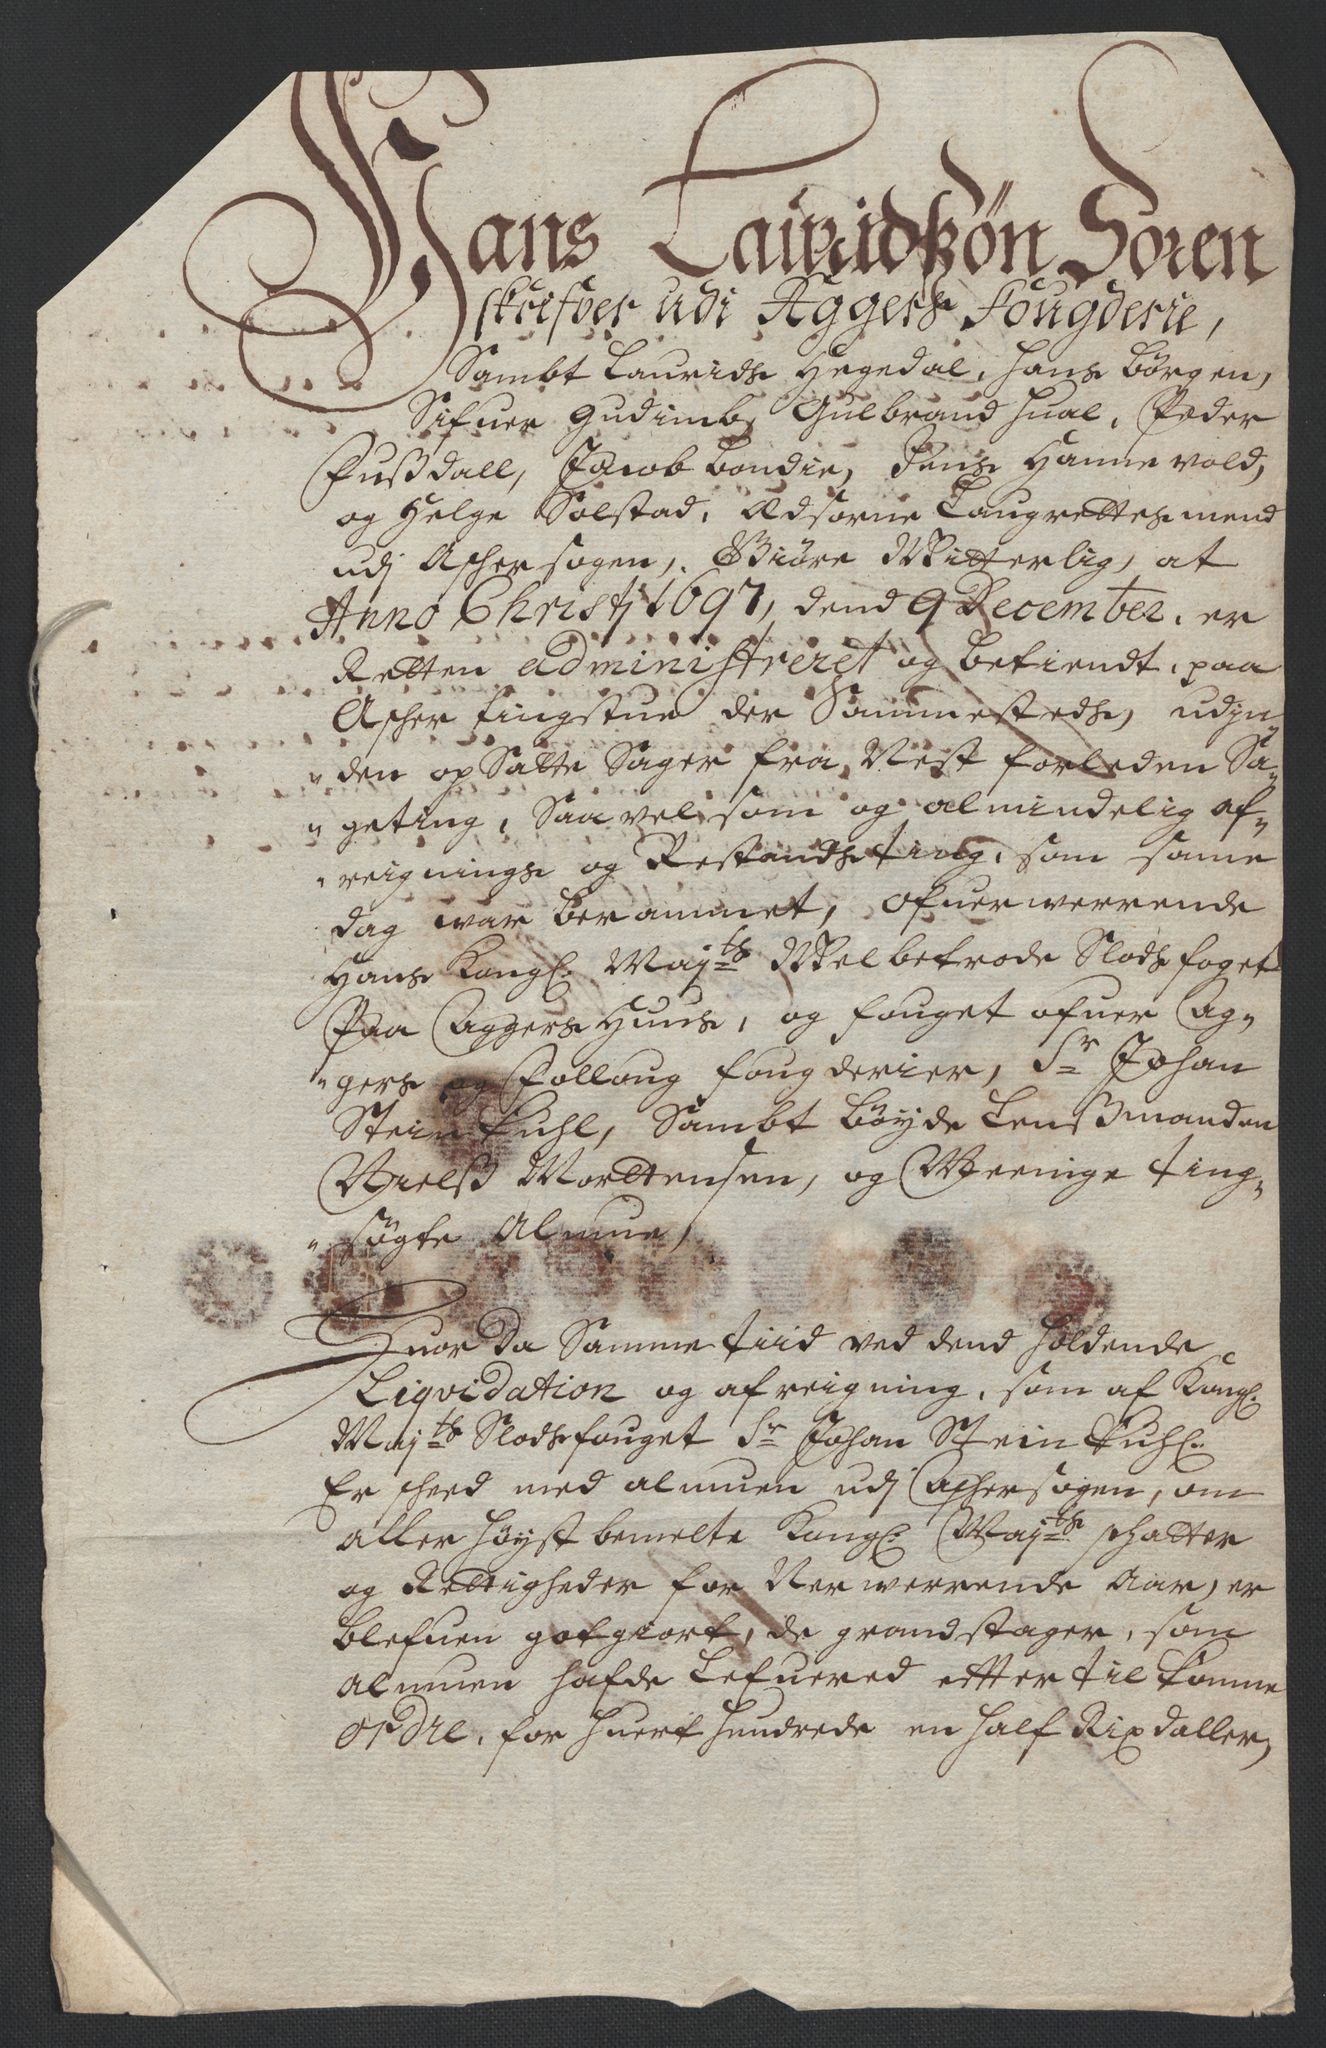 Hans Lauridtzön Soren
skrifver udi Aggers Fougderie,
Sambt Laurids Hegedal, Hans Börgen,
Sifuer Gudimb, Gulbrand Hual, Peder
Fußdall, Jacob Bondie, Jens Hannevold,
og Helge Solstad, Edsorne Laugrettesmend
udj Asher sogen, Giöre Witterlig, at
Anno Christj 1697, dend 9 December, er
Retten administreret og betiendt, paa
Asher tingstue der Sammesteds, udjn„
„den op Satte Sager fra Nest forleden Sa„
„geting, Saavelsom og almindelig af„
„reignings og Restands ting, som same
dag war berammet, ofuerwerrende
Hans Kongl. Maj:ts Welbetrode Slodsfoget
Paa Aggers Huus, og fouget ofuer Ag„
„gers og Folloug fougderier, Sr Johan
Stein Kuhl, Sambt böyde Lensmanden
Nielß Morttensen, og Meenige ting„
„søgte Almue,
Huor da Samme tiid ved dend holdende
Liqvidation og afreigning, som af Kongl.
Maj:ts Slodsfouget Sr Johan Stein Kuhl.
Er scheed med almuen udj Ashersogen, om
aller höystbemelte Kongl. Maj:ts schatter
og Rettigheder for Nerwerrende Aar, er
blefuen gotgiort, de grandstager, som
almuen hafde Lefuered etter til komne
ordre, for huert hundrede en half Rixdaller,